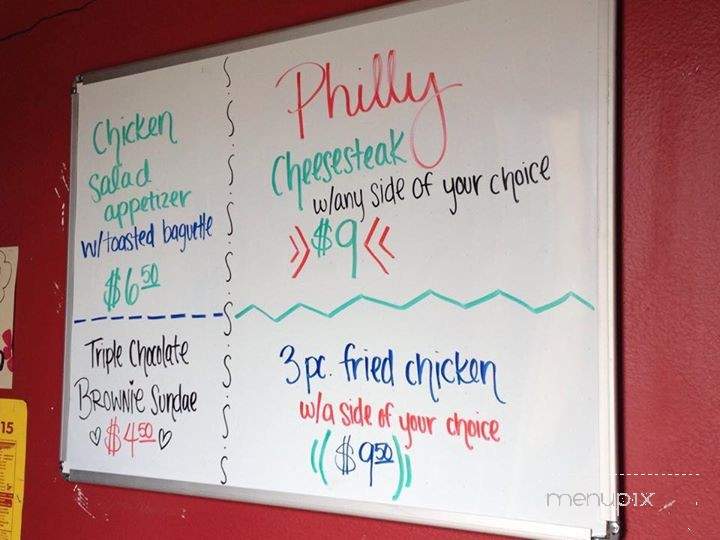 Chicken
Salad
appetizer
w/toasted baguette
$6.50
Triple Chocolate
Brownie Sundae
$4.50
Philly
Cheesesteak
w/any side of your choice
$9
3 pc. fried chicken
w/a side of your choice
$9.50
15
menupix